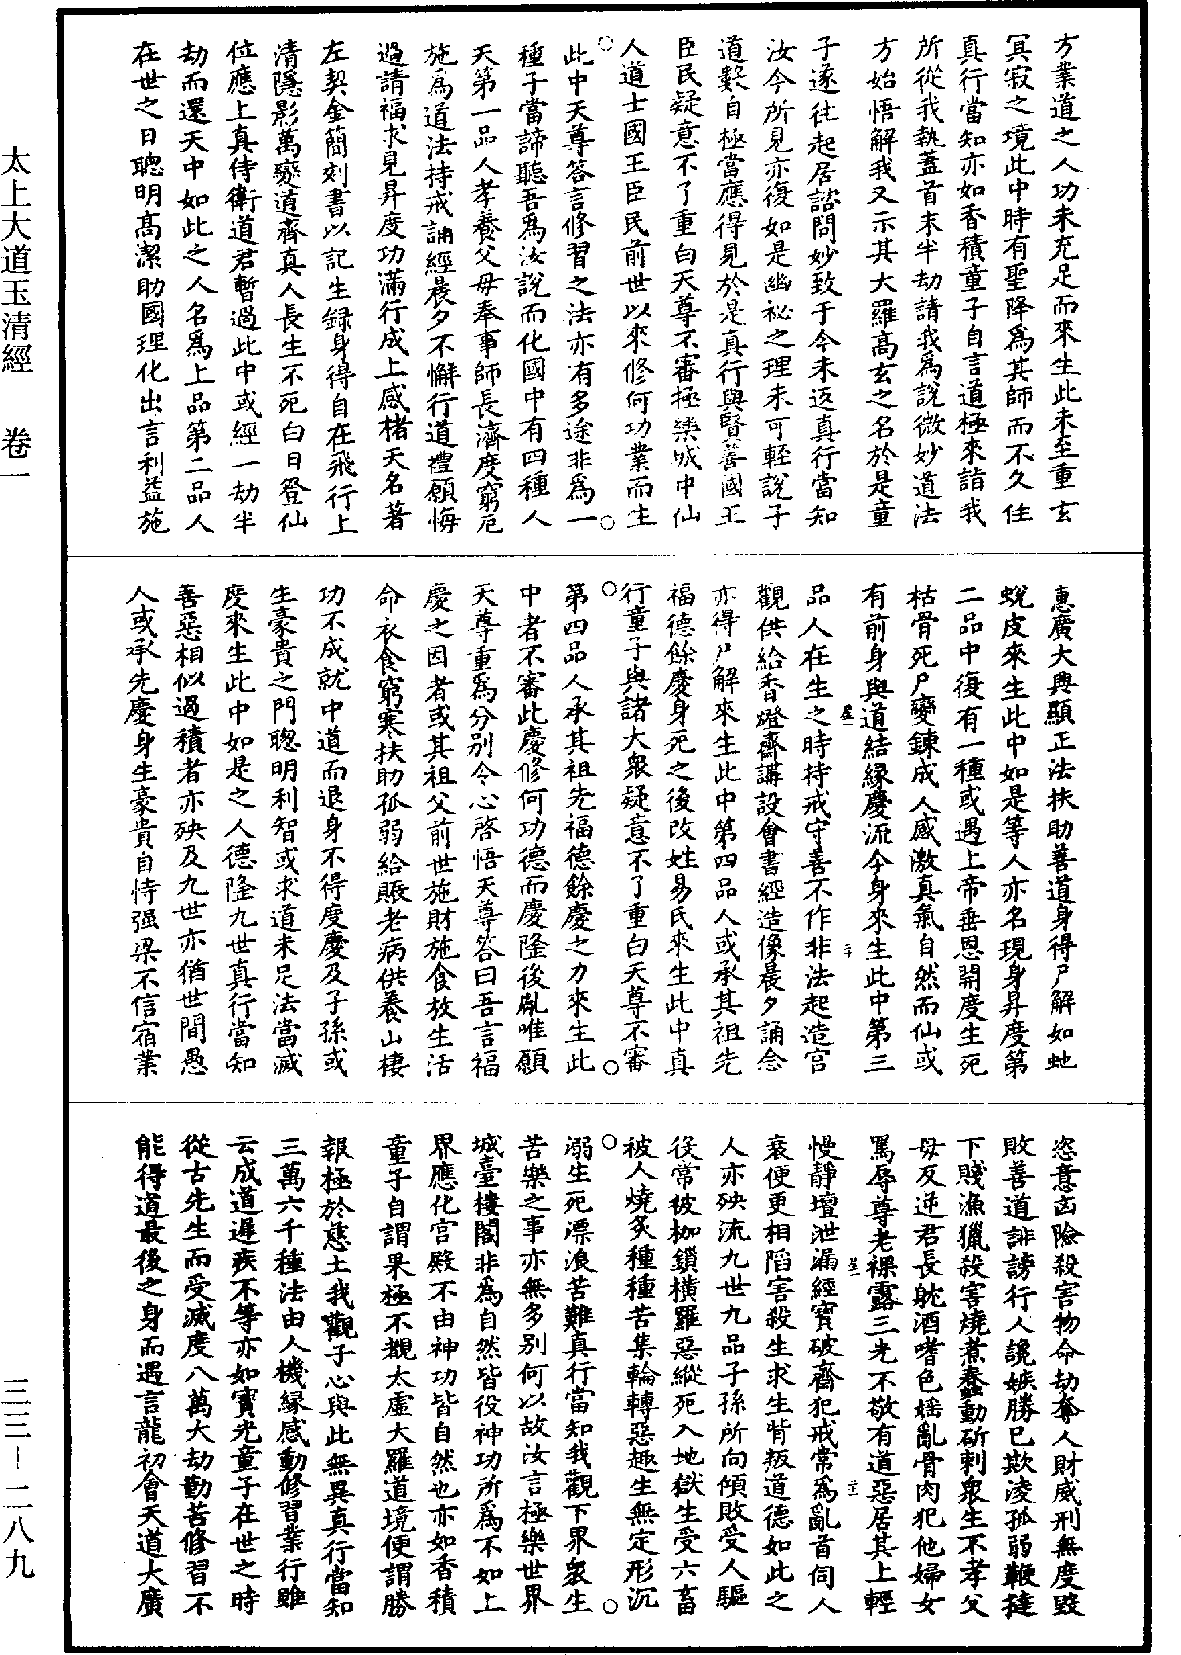 方業道之人功未充足而來生此未至重玄
冥寂之境此中時有聖降爲其師而不久住
真行當知亦如香積童子自言道極來詣我
所從我執蓋首末半劫請我爲說微妙道法
方始悟解我又示其大羅高玄之名於是童
子遂往起居諮問妙致于今未返真行當知
汝今所見亦復如是幽祕之理未可輕說子
道數自極當應得見於是真行與賢善國王
臣民疑意不了重白天尊不審極樂城中仙
人道士國王臣民前世以來修何功業而生
此中天尊答言修習之法亦有多途非爲一
種子當諦聽吾爲汝說而化國中有四種人
天第一品人孝養父母奉事師長濟度窮厄
施爲道法持戒誦經晨夕不懈行道禮願悔
過請福求見昇度功滿行成上感楮天名著
左契金簡刻書以記生錄身得自在飛行上
清隱影萬變道齊真人長生不死白日登仙
位應上真侍衛道君暫過此中或經一劫半
劫而還天中如此之人名爲上品第二品人
在世之日聰明高潔助國理化出言利益施
惠廣大興顯正法扶助善道身得尸解如蚍
蛻皮來生此中如是等人亦名現身昇度第
二品中復有一種或遇上帝垂恩開度生死
枯骨死尸變鍊成人感激真氣自然而仙或
有前身與道結緣慶流今身來生此中第三
品人在生之時持戒守善不作非法起造宮
觀供給香燈齋講設會書經造像晨夕誦念
亦得尸解來生此中第四品人或承其祖先
福德餘慶身死之後改姓易氏來生此中真
行童子與諸大衆疑意不了重白天尊不審
第四品人承其祖先福德餘慶之力來生此
中者不審此慶修何功德而慶隆後胤唯願
天尊重爲分別令心啓悟天尊答曰吾言福
慶之因者或其祖父前世施財施食放生活
命衣食窮寒扶助孤弱給賑老病供養山棲
功不成就中道而退身不得度慶及子孫或
生豪貴之門聰明利智或求道未足法當滅
度來生此中如是之人德隆九世真行當知
善惡相似過積者亦殃及九世亦猶世間愚
人或承先慶身生豪貴自恃强梁不信宿業
恣意凶險殺害物命劫奪人財威刑無度毀
敗善道誹謗行人讒嫉勝己欺淩孤弱鞭撻
下賤漁獵殺害燒煮蠢動斫刺衆生不孝父
母反逆君長躭酒嗜色婬亂骨肉犯他婦女
罵辱尊老裸露三光不敬有道惡居其上輕
慢靜壇泄漏經寶破齋犯戒常爲亂首伺人
衰便更相陷害殺生求生背叛道德如此之
人亦殃流九世九品子孫所向傾敗受人驅
役常被枷鎖橫羅惡縱死入地獄生受六畜
被人燒炙種種苦集輪轉惡趣生無定形沉
溺生死漂浪苦難真行當知我觀下界衆生
苦樂之事亦無多別何以故汝言極樂世界
城臺樓閣非爲自然皆役神功所爲不如上
界應化宮殿不由神功皆自然也亦如香積
童子自謂果極不觀太虛大羅道境便謂勝
報極於慈土我觀子心與此無異真行當知
三萬六千種法由人機緣感動修習業行雖
云成道遲疾不等亦如寶光童子在世之時
從古先生而受滅度八萬大劫勤苦修習不
能得道最後之身而遇言龍初會天道大廣
太上大道玉清經　卷一
三三—二八九